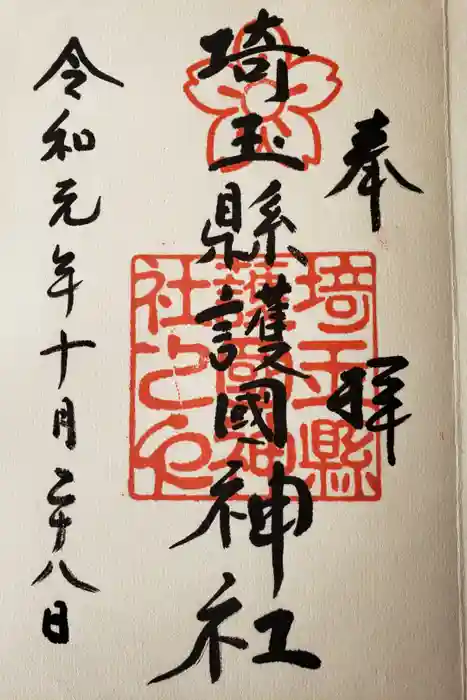 奉拝
埼玉縣護國神社
埼玉縣
護國神
社之印
令和元年十月二十八日